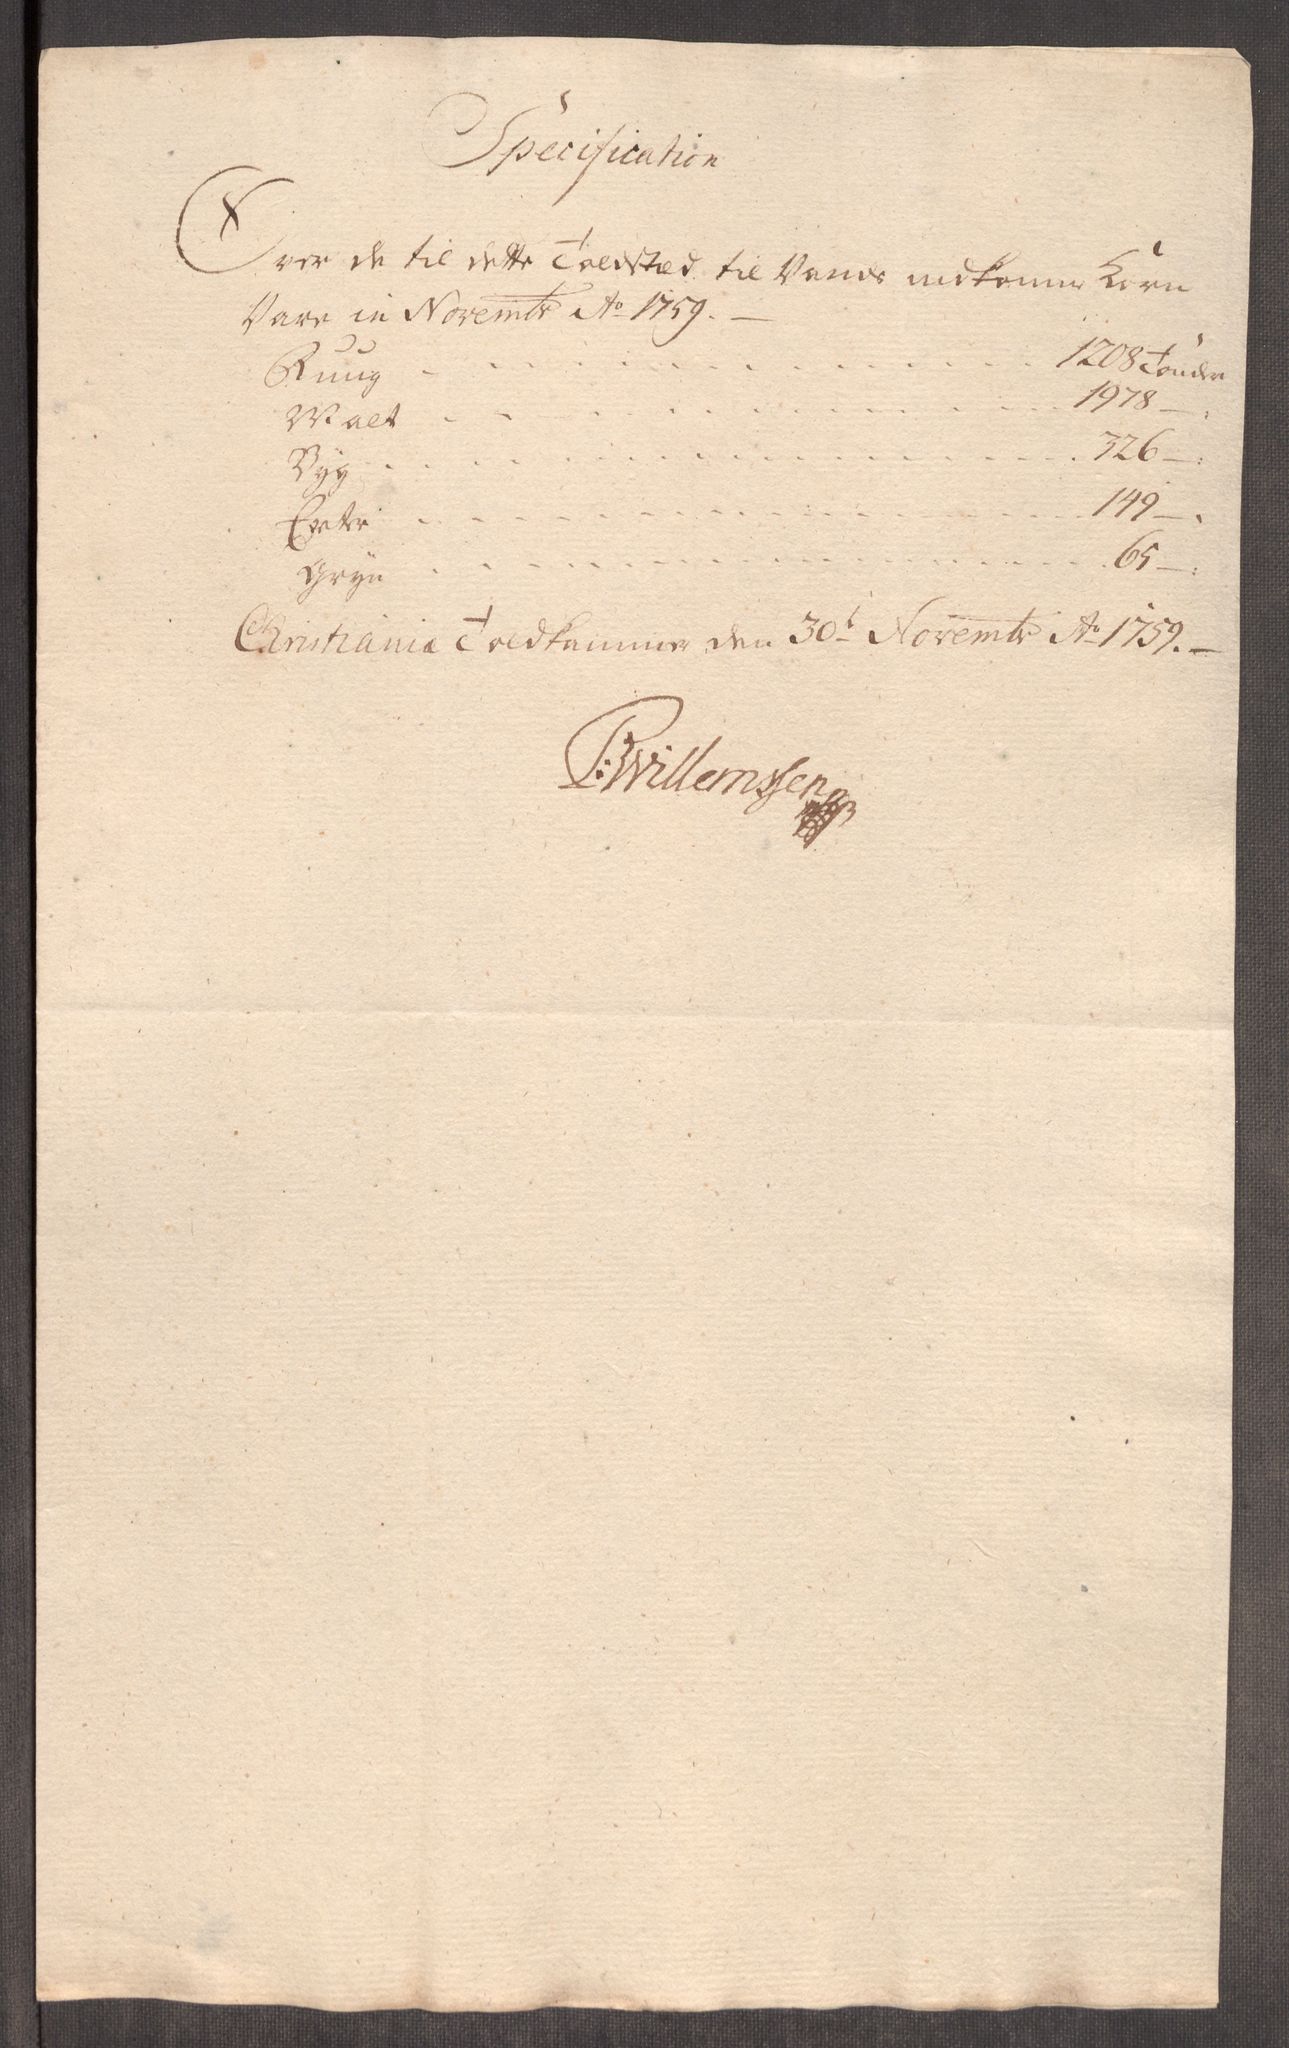 Specification
Over de til dette Toldsted til Vands indkomne Korn
Vare in Novembr Ao 1759. —
Ruug - - - 1208 Tønder
Malt - - - 1978 —
Byg - - - 326 —
Erter - - - 149 —
Gryn - - - 65 —
Christiania Toldkammer den 30t Novembr Ao 1759. —
P: Willemssen